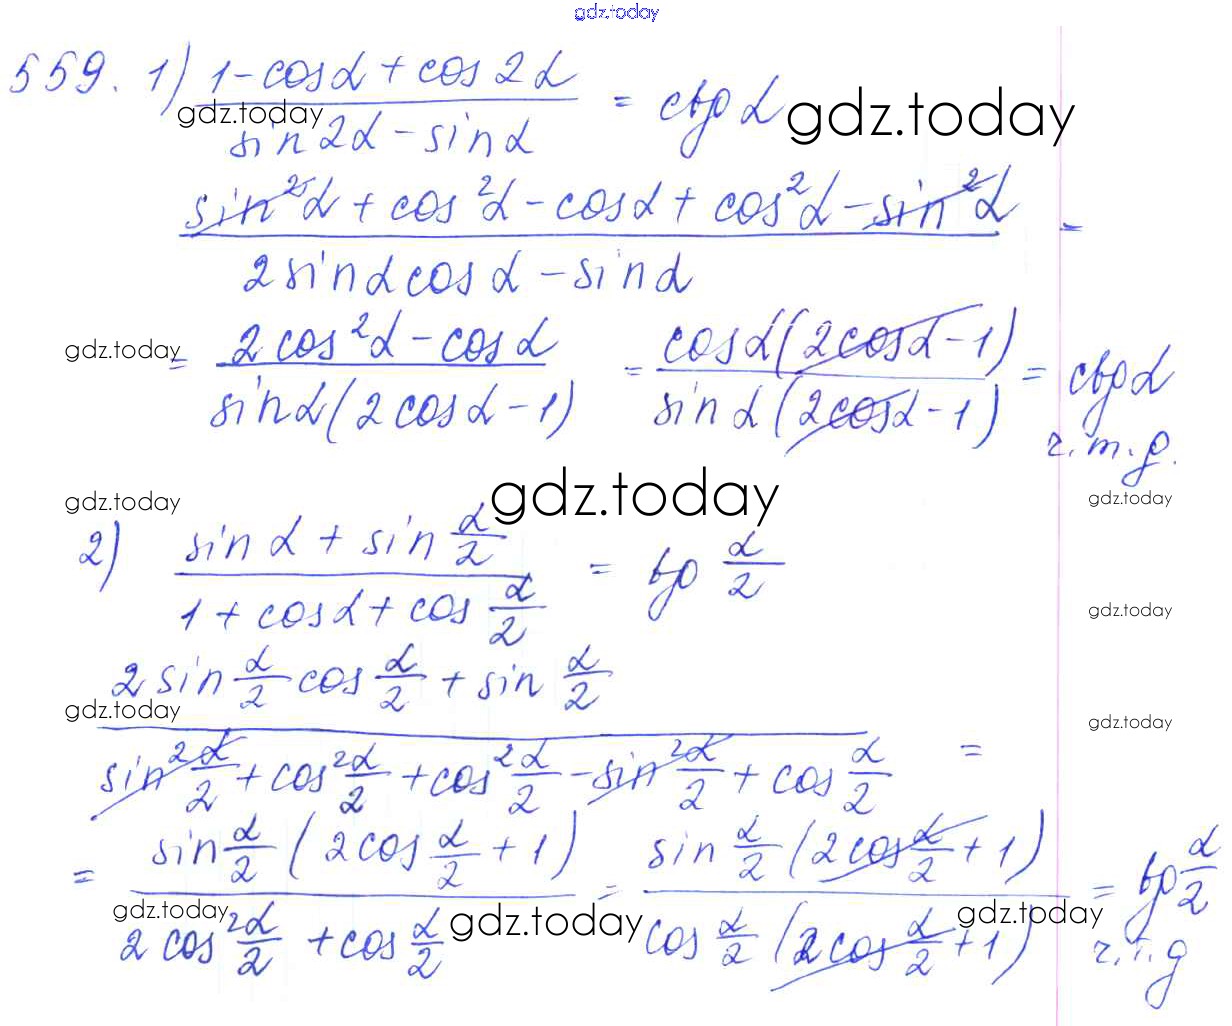 gdz.today
559. 1) (1 - cos α + cos 2α) / (sin 2α - sin α) = ctg α
gdz.today gdz.today
(sin²α + cos²α - cos α + cos²α - sin²α) / (2 sin α cos α - sin α) =
= (2 cos²α - cos α) / (sin α (2 cos α - 1)) = (cos α (2 cos α - 1)) / (sin α (2 cos α - 1)) = ctg α
gdz.today
ч.т.д.
gdz.today gdz.today gdz.today
2) (sin α + sin α/2) / (1 + cos α + cos α/2) = tg α/2
gdz.today
(2 sin α/2 cos α/2 + sin α/2) / (sin² α/2 + cos² α/2 + cos² α/2 - sin² α/2 + cos α/2) =
gdz.today gdz.today
= (sin α/2 (2 cos α/2 + 1)) / (2 cos² α/2 + cos α/2) = (sin α/2 (2 cos α/2 + 1)) / (cos α/2 (2 cos α/2 + 1)) = tg α/2
gdz.today gdz.today gdz.today
ч.т.д